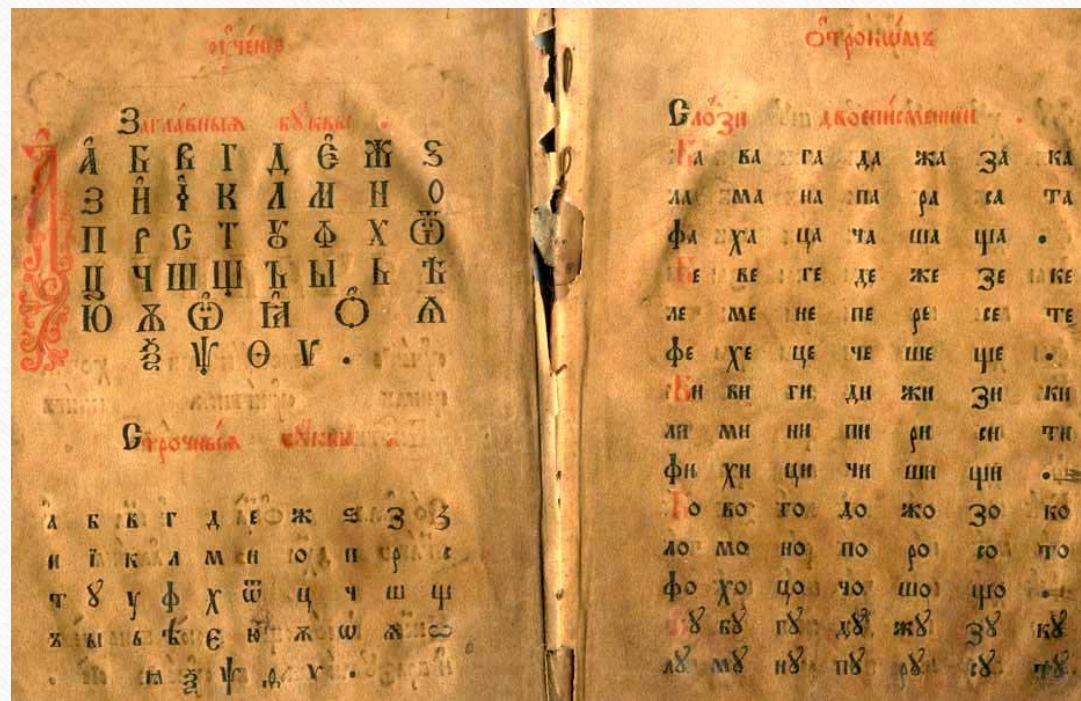 оучéнїе
Заглавныѧ бꙋквы .
А Б В Г Д Є Ж Ѕ
З И І К Л М Н О
П Р С Т Ꙋ Ф Х Ѿ
Ц Ч Ш Щ Ъ Ы Ь Ѣ
Ю Ѫ Ѡ Ꙗ Ѻ Ѧ
Ѯ Ѱ Ѳ Ѵ .
Строчныѧ бꙋквы
а б в г д е ж ѕ з ꙁ
и ї к л м н о п р с
т ꙋ у ф х ѿ ц ч ш щ
ъ ы ь ѣ є ю ѫ ѡ ѧ
ѯ ѱ ѵ .
ѻтрокѡмъ
Слози двоеписменнїи .
Ба ва га да жа за ка
ла ма на па ра са та
фа ха ца ча ша ща .
Бе ве ге де же зе ке
ле ме не пе ре се те
фе хе це че ше ще .
Би ви ги ди жи зи ки
ли ми ни пи ри си ти
фи хи ци чи ши щи .
Бо во го до жо зо ко
ло мо но по ро со то
фо хо цо чо шо що .
Бꙋ вꙋ гꙋ дꙋ жꙋ зꙋ кꙋ
лꙋ мꙋ нꙋ пꙋ рꙋ сꙋ тꙋ